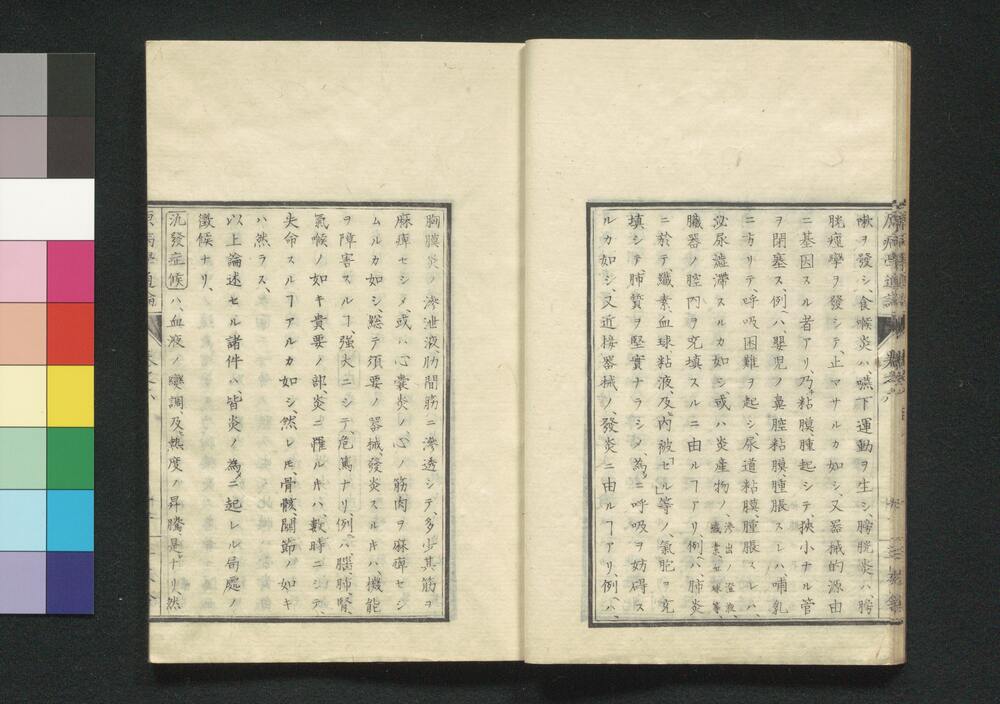 嗽ヲ發シ、食喉炎ハ、嚥下運動ヲ生シ、膀胱炎ハ、膀
胱瘽攣ヲ發シテ、止マサルカ如シ、又器械的源由
ニ基因スル者アリ、乃粘膜、腫起シテ、挾小ナル管
ヲ閉塞ス、例ハ、嬰児ノ鼻腔粘膜、腫脹スレハ哺乳
ニ方リテ、呼吸困難ヲ起シ尿道粘膜、腫脹スレハ、
泌尿澁滯スルカ如シ或ハ炎產物ノ、滲出ノ澄液、纖素、血球等、
臓器ノ腔內ヲ充填スルニ由ルヿアリ、例ハ、肺炎
ニ於テ、纖素血球粘液、及「內被セル」等ノ、氣胞ヲ充
填シテ、肺質ヲ堅實ナラシメ、為ニ呼吸ヲ妨碍ス
ルカ如シ、又近接器械ノ、發炎ニ由ルヿアリ、例ハ、
胸膜炎ノ滲泄液、肋間筋ニ滲透シテ、多少其筋ヲ
麻痺セシメ、或ハ心囊炎ノ、心ノ筋肉ヲ麻痺セシ
ムルカ如シ、総テ須要ノ器械、發炎スルキハ、機能
ヲ障害スルヿ、强大ニシテ、危篤ナリ、例ハ、腦、肺、腎、
氣喉ノ如キ貴要ノ部、炎ニ罹ルキハ、數時ニシテ、
失命スルヿアルカ如シ、然レ𪜈、骨骸、關節ノ如キ
ハ然ラス、
以上論述セル諸件ハ皆炎ノ為ニ起レル局處ノ
徵候ナリ、
汎發症候ハ、血液ノ變調、及、熱度ノ昇騰是ナリ、然